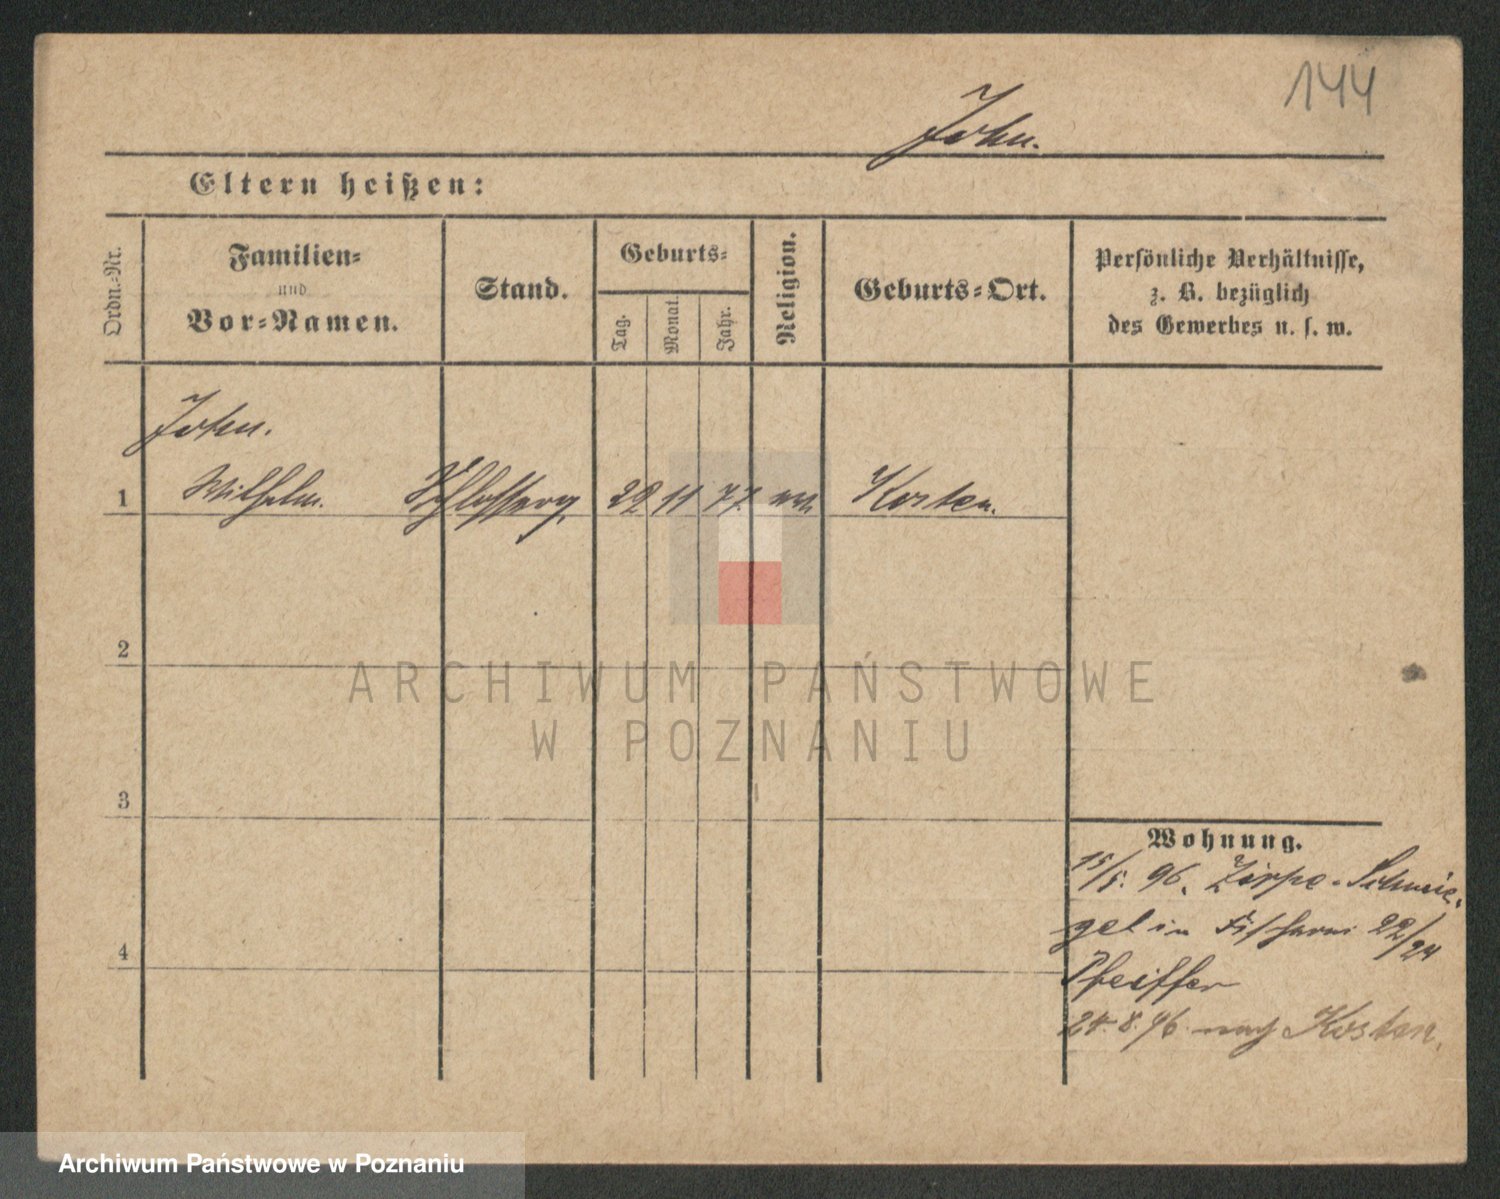 144
John.
Eltern heißen:
Ordn.-Nr.
Familien-
und
Vor-Namen.
Stand.
Geburts-
Tag.
Monat.
Jahr.
Religion.
Geburts-Ort.
Persönliche Verhältnisse,
z. B. bezüglich
des Gewerbes u. s. w.
John.
1 Wilhelm. 22 11 77. Kosten.
2
3
4
Wohnung.
15/5. 96.
gel in 22/24
Pfeiffer
24.8.96. nach Kosten.
ARCHIWUM PAŃSTWOWE
W POZNANIU
Archiwum Państwowe w Poznaniu